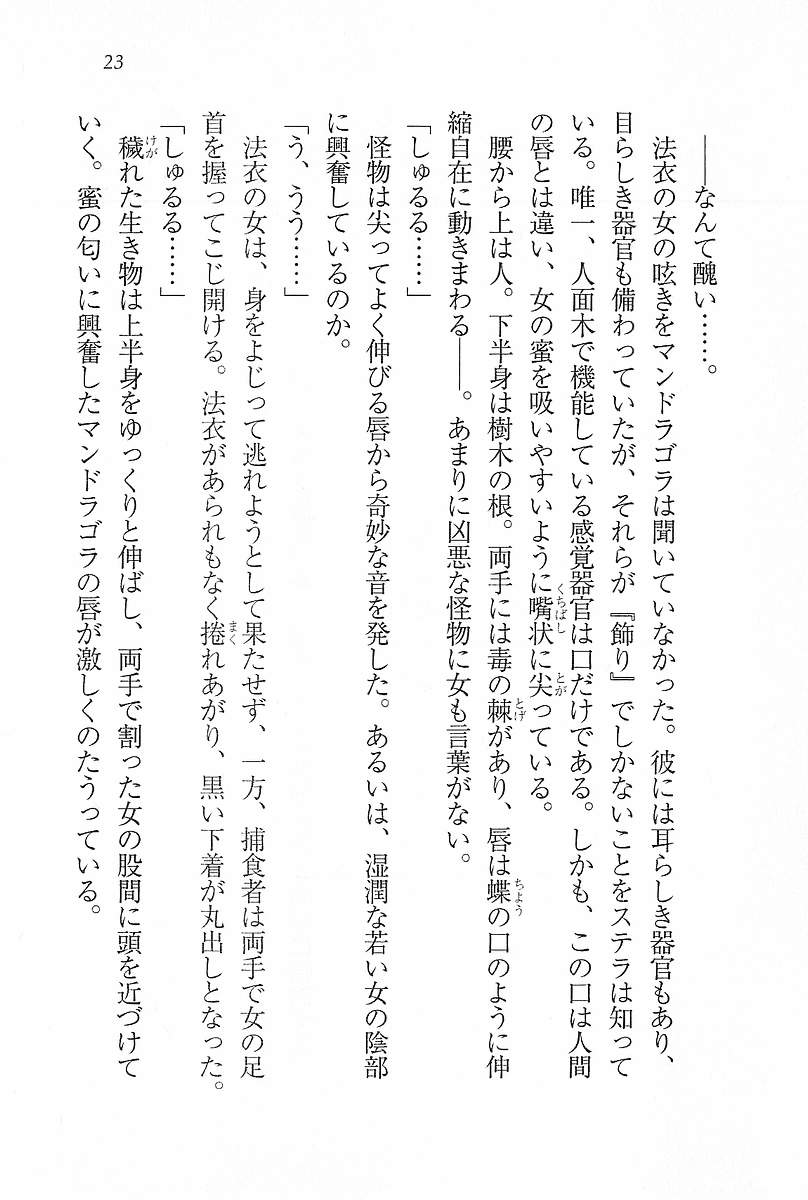 23
――なんて醜い……。
法衣の女の呟きをマンドラゴラは聞いていなかった。彼には耳らしき器官もあり、
目らしき器官も備わっていたが、それらが『飾り』でしかないことをステラは知って
いる。唯一、人面木で機能している感覚器官は口だけである。しかも、この口は人間
の唇とは違い、女の蜜を吸いやすいように嘴状に尖っている。
腰から上は人。下半身は樹木の根。両手には毒の棘があり、唇は蝶の口のように伸
縮自在に動きまわる――。あまりに凶悪な怪物に女も言葉がない。
「しゅるる……」
怪物は尖ってよく伸びる唇から奇妙な音を発した。あるいは、湿潤な若い女の陰部
に興奮しているのか。
「う、うう……」
法衣の女は、身をよじって逃れようとして果たせず、一方、捕食者は両手で女の足
首を握ってこじ開ける。法衣があられもなく捲れあがり、黒い下着が丸出しとなった。
「しゅるる……」
穢れた生き物は上半身をゆっくりと伸ばし、両手で割った女の股間に頭を近づけて
いく。蜜の匂いに興奮したマンドラゴラの唇が激しくのたうっている。